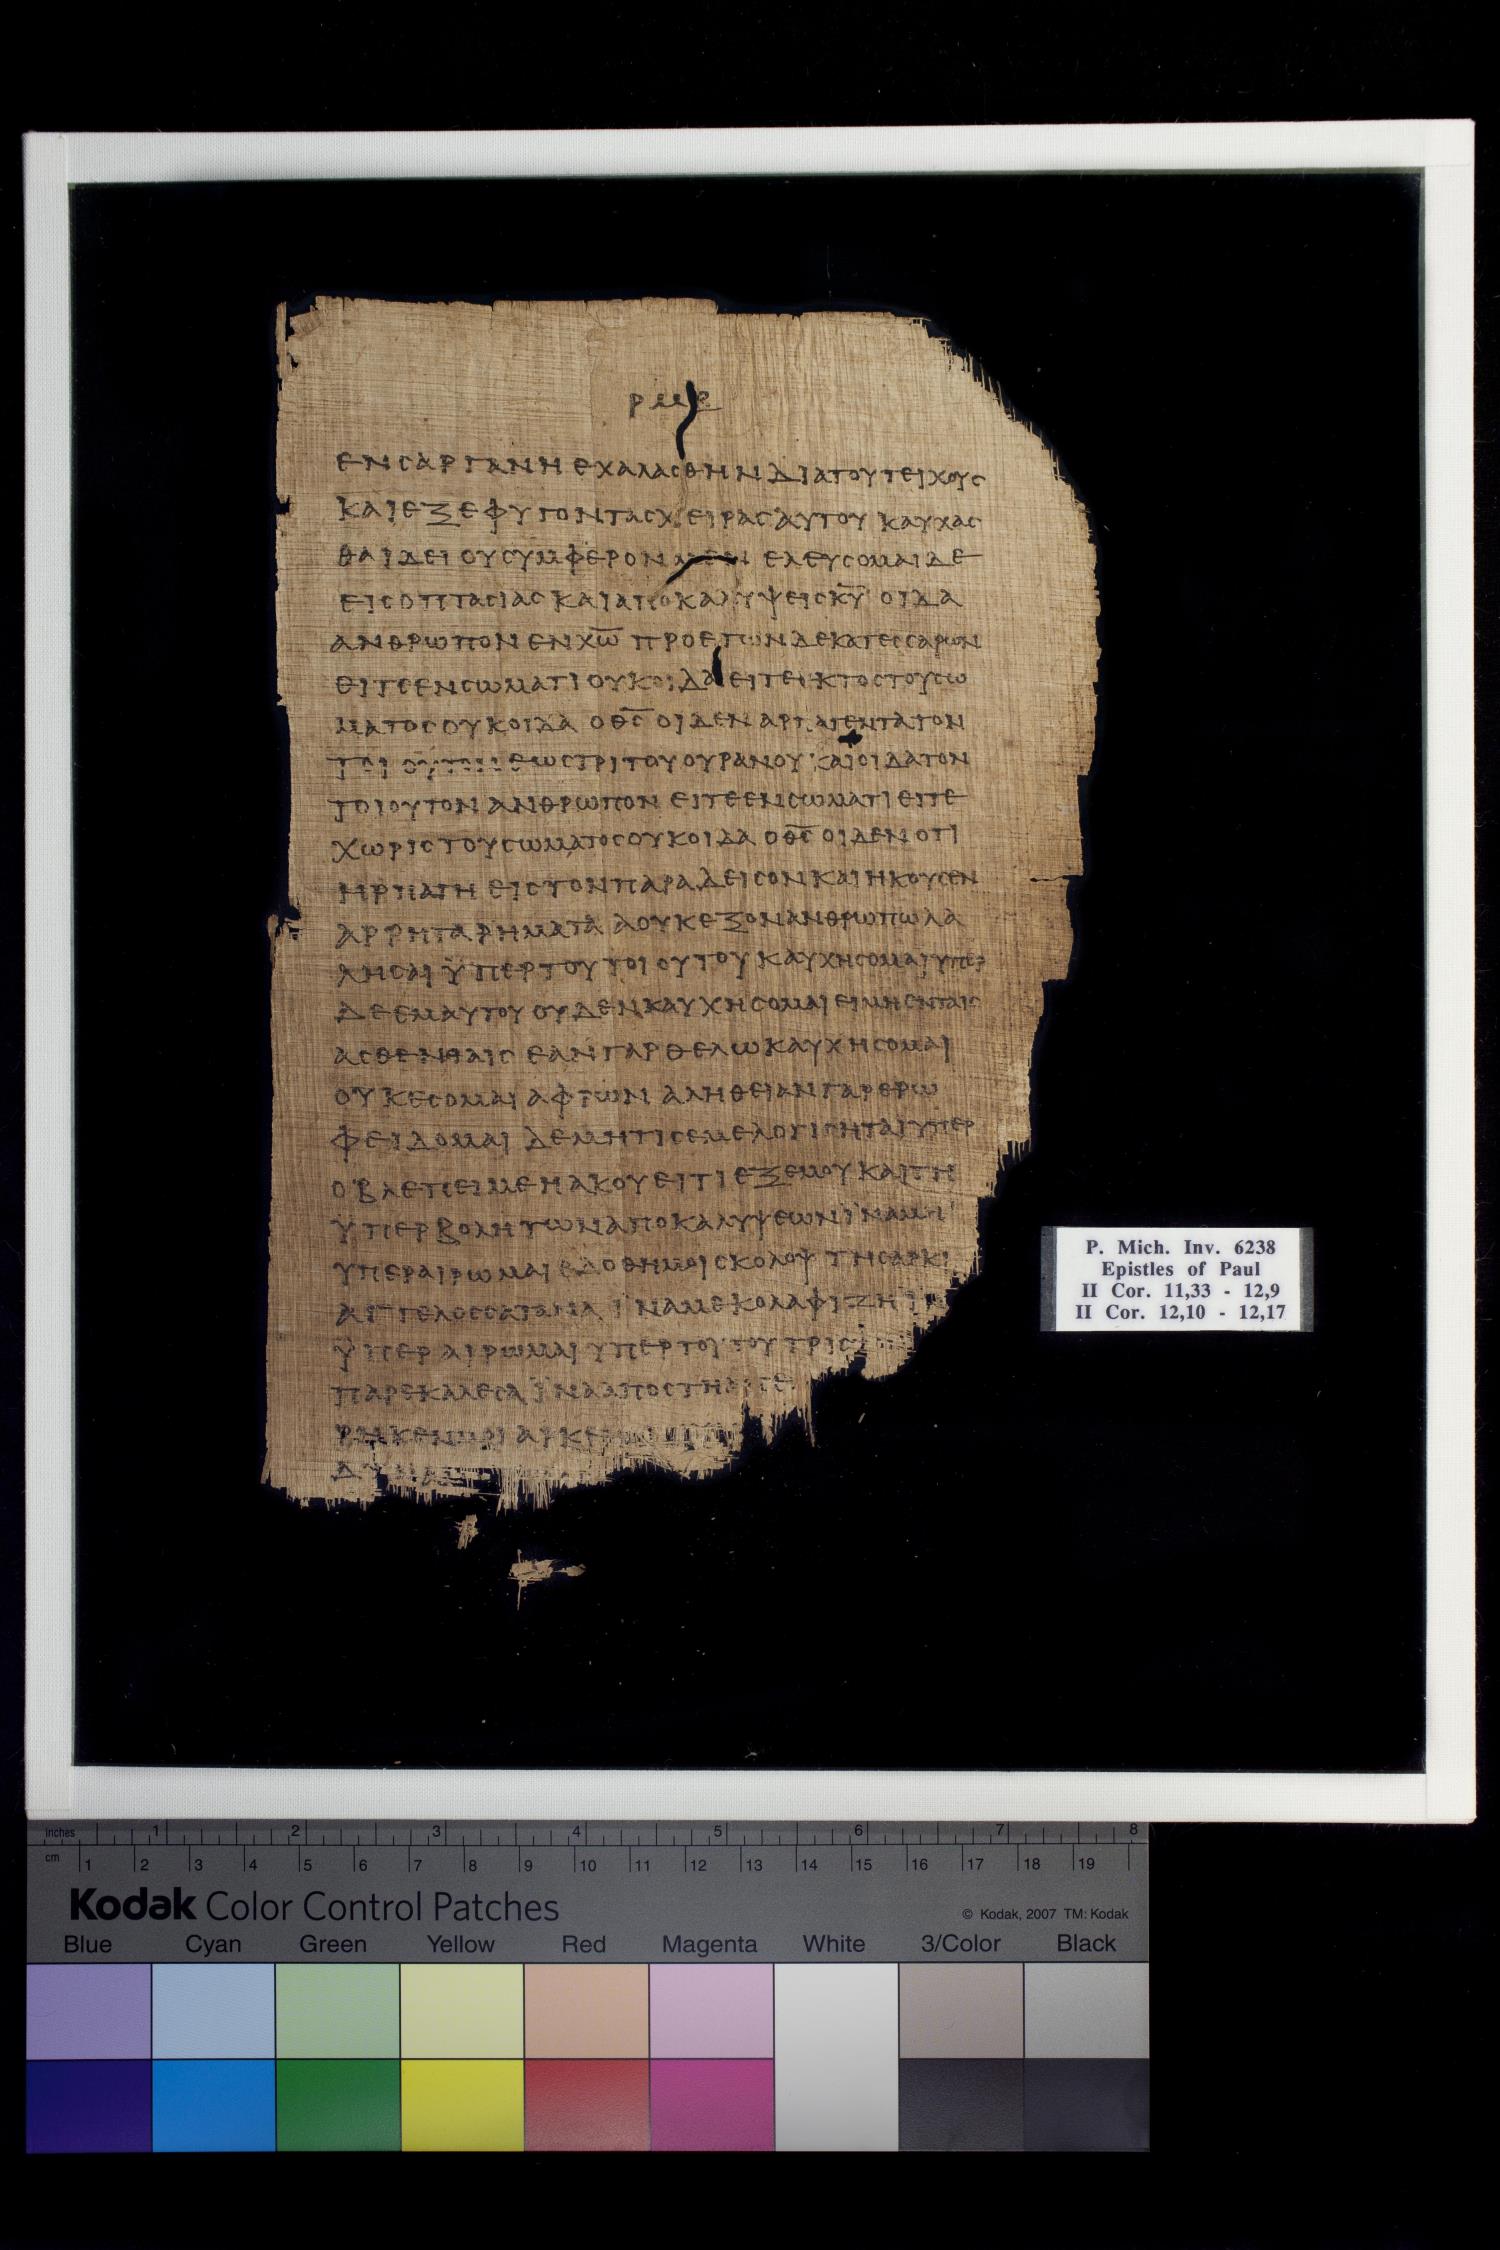 ρμε
ΕΝ ΣΑΡΓΑΝΗ ΕΧΑΛΑΣΘΗΝ ΔΙΑ ΤΟΥ ΤΕΙΧΟΥΣ
ΚΑΙ ΕΞΕΦΥΓΟΝ ΤΑΣ ΧΕΙΡΑΣ ΑΥΤΟΥ ΚΑΥΧΑΣ
ΘΑΙ ΔΕΙ ΟΥ ΣΥΜΦΕΡΟΝ ΜΕΝ ΕΛΕΥΣΟΜΑΙ ΔΕ
ΕΙΣ ΟΠΤΑΣΙΑΣ ΚΑΙ ΑΠΟΚΑΛΥΨΕΙΣ Κ̅Υ̅ ΟΙΔΑ
ΑΝΘΡΩΠΟΝ ΕΝ Χ̅Ω̅ ΠΡΟ ΕΤΩΝ ΔΕΚΑΤΕΣΣΑΡΩΝ
ΕΙΤΕ ΕΝ ΣΩΜΑΤΙ ΟΥΚ ΟΙΔΑ ΕΙΤΕ ΕΚΤΟΣ ΤΟΥ ΣΩ
ΜΑΤΟΣ ΟΥΚ ΟΙΔΑ Ο Θ̅Σ̅ ΟΙΔΕΝ ΑΡΠΑΓΕΝΤΑ ΤΟΝ
ΤΟΙΟΥΤΟΝ ΕΩΣ ΤΡΙΤΟΥ ΟΥΡΑΝΟΥ ΚΑΙ ΟΙΔΑ ΤΟΝ
ΤΟΙΟΥΤΟΝ ΑΝΘΡΩΠΟΝ ΕΙΤΕ ΕΝ ΣΩΜΑΤΙ ΕΙΤΕ
ΧΩΡΙΣ ΤΟΥ ΣΩΜΑΤΟΣ ΟΥΚ ΟΙΔΑ Ο Θ̅Σ̅ ΟΙΔΕΝ ΟΤΙ
ΗΡΠΑΓΗ ΕΙΣ ΤΟΝ ΠΑΡΑΔΕΙΣΟΝ ΚΑΙ ΗΚΟΥΣΕΝ
ΑΡΡΗΤΑ ΡΗΜΑΤΑ Α ΟΥΚ ΕΞΟΝ ΑΝΘΡΩΠΩ ΛΑ
ΛΗΣΑΙ ΫΠΕΡ ΤΟΥ ΤΟΙΟΥΤΟΥ ΚΑΥΧΗΣΟΜΑΙ ΥΠΕΡ
ΔΕ ΕΜΑΥΤΟΥ ΟΥΔΕΝ ΚΑΥΧΗΣΟΜΑΙ ΕΙ ΜΗ ΕΝ ΤΑΙΣ
ΑΣΘΕΝΙΑΙΣ ΕΑΝ ΓΑΡ ΘΕΛΩ ΚΑΥΧΗΣΟΜΑΙ
ΟΥΚ ΕΣΟΜΑΙ ΑΦΡΩΝ ΑΛΗΘΕΙΑΝ ΓΑΡ ΕΡΩ
ΦΕΙΔΟΜΑΙ ΔΕ ΜΗ ΤΙΣ ΕΜΕ ΛΟΓΙΣΗΤΑΙ ΥΠΕΡ
Ο ΒΛΕΠΕΙ ΜΕ Η ΑΚΟΥΕΙ ΤΙ ΕΞ ΕΜΟΥ ΚΑΙ ΤΗ
ΥΠΕΡΒΟΛΗ ΤΩΝ ΑΠΟΚΑΛΥΨΕΩΝ ΪΝΑ ΜΗ
ΥΠΕΡΑΙΡΩΜΑΙ ΕΔΟΘΗ ΜΟΙ ΣΚΟΛΟΨ ΤΗ ΣΑΡΚΙ
ΑΓΓΕΛΟΣ ΣΑΤΑΝΑ ΪΝΑ ΜΕ ΚΟΛΑΦΙΖΗ
ΥΠΕΡΑΙΡΩΜΑΙ ΥΠΕΡ ΤΟΥΤΟΥ ΤΡΙΣ
ΠΑΡΕΚΑΛΕΣΑ ΪΝΑ ΑΠΟΣΤΗ
ΡΗΚΕΝ ΜΟΙ ΑΡΚΕΙ
ΔΥΝΑ
P. Mich. Inv. 6238
Epistles of Paul
II Cor. 11,33 - 12,9
II Cor. 12,10 - 12,17
inches 1 2 3 4 5 6 7 8
cm 1 2 3 4 5 6 7 8 9 10 11 12 13 14 15 16 17 18 19
Kodak Color Control Patches
© Kodak, 2007 TM: Kodak
Blue Cyan Green Yellow Red Magenta White 3/Color Black